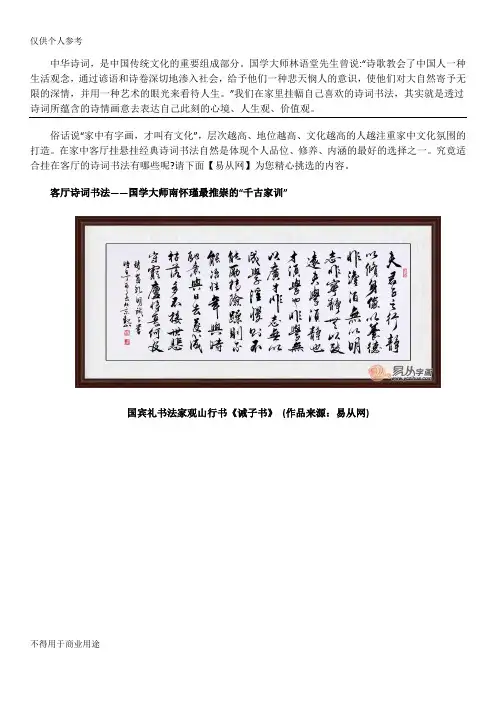 仅供个人参考
中华诗词，是中国传统文化的重要组成部分。国学大师林语堂先生曾说:“诗歌教会了中国人一种
生活观念，通过谚语和诗卷深切地渗入社会，给予他们一种悲天悯人的意识，使他们对大自然寄予无
限的深情，并用一种艺术的眼光来看待人生。”我们在家里挂幅自己喜欢的诗词书法，其实就是透过
诗词所蕴含的诗情画意去表达自己此刻的心境、人生观、价值观。
俗话说“家中有字画，才叫有文化”，层次越高、地位越高、文化越高的人越注重家中文化氛围的
打造。在家中客厅挂悬挂经典诗词书法自然是体现个人品位、修养、内涵的最好的选择之一。究竟适
合挂在客厅的诗词书法有哪些呢?请下面【易从网】为您精心挑选的内容。
客厅诗词书法——国学大师南怀瑾最推崇的“千古家训”
夫君子之行静
以脩身儉以養德
非澹泊無以明
志非寧静無以致
遠夫學須静也
才須學也非學無
以廣才非志無以
成學淫慢則不
能勵精險躁則不
能治性年與時
馳意與日去遂成
枯落多不接世悲
守窮廬將復何及
易从字画
www.yozihua.com
国宾礼书法家观山行书《诫子书》 (作品来源：易从网)
不得用于商业用途